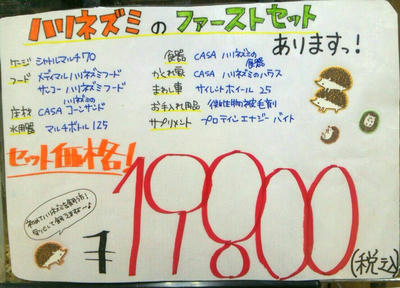 ハリネズミのファーストセット
ありますっ!
ケージ シャトルマルチ70
フード メディマルハリネズミフード
サンコーハリネズミフード
ハリネズミの
床材 CASA コーンサンド
水用器 マルチボトル125
食器 CASA ハリネズミの
食器
かくれ家 CASA ハリネズミのハウス
まわし車 サイレントホイール 25
お手入れ用品
サプリメント プロテインエナジーバイト
セット価格!
¥19800
(税込)
初めてハリネズミを飼う方!
安心して飼えますよー♪